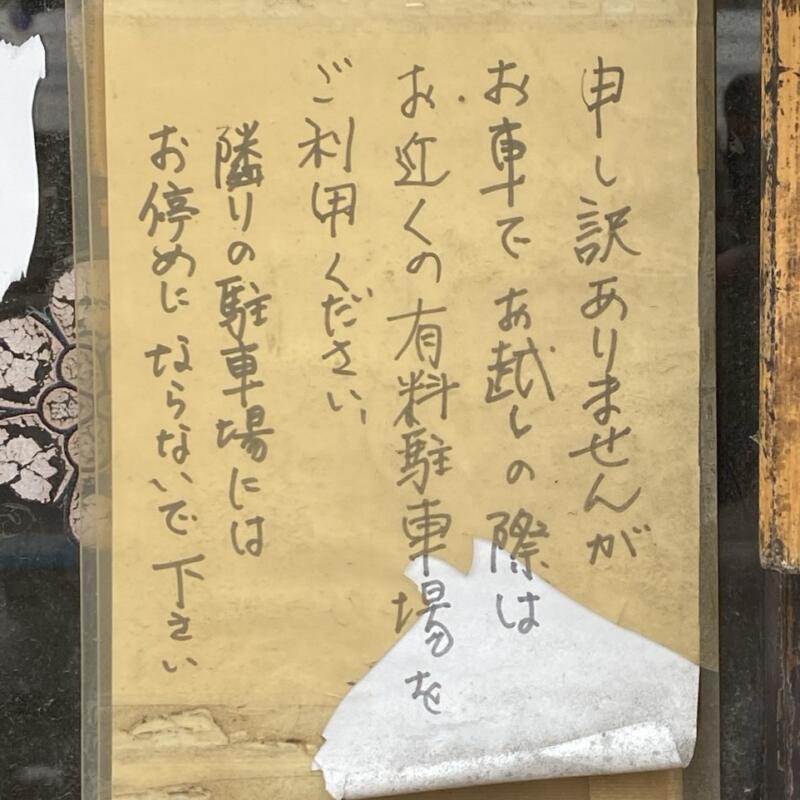 申し訳ありませんが
お車でお越しの際は
お近くの有料駐車場を
ご利用ください、
隣りの駐車場には
お停めにならないで下さい